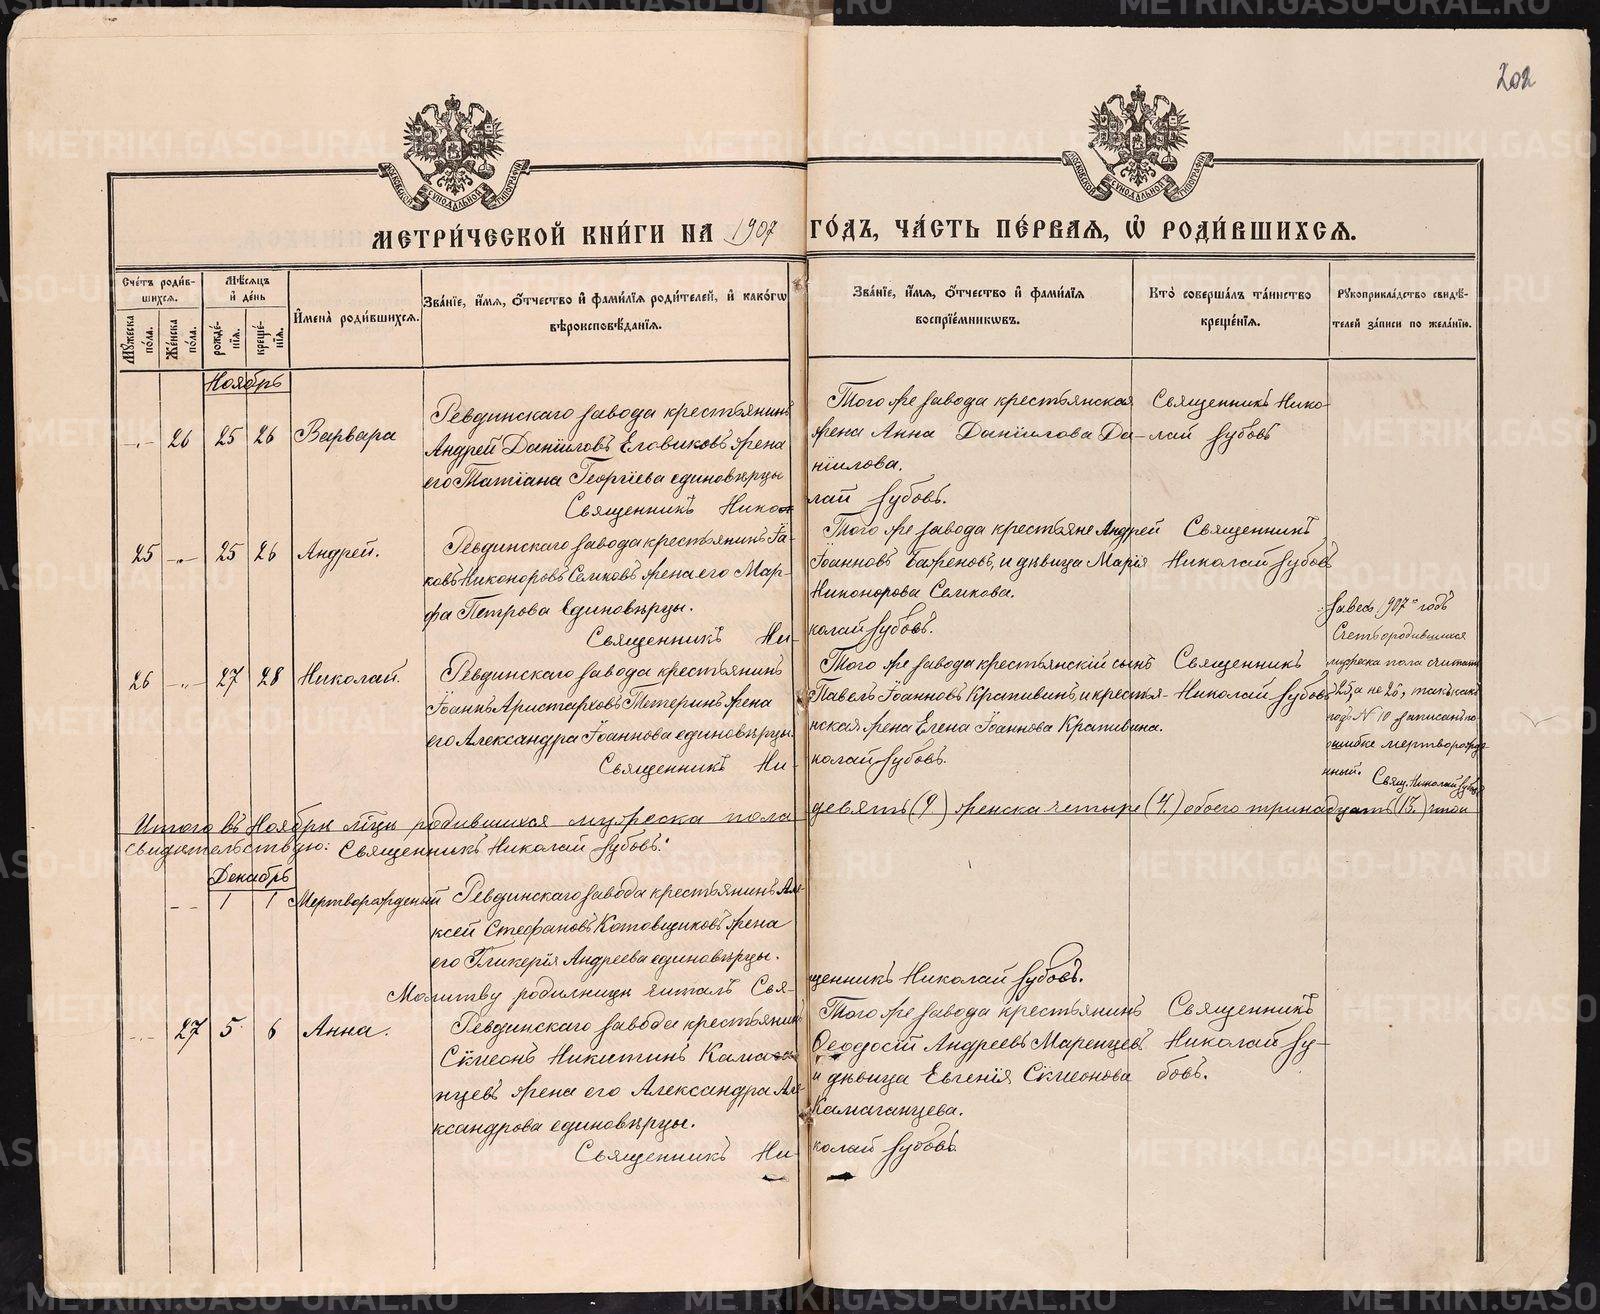 202
МОСКОВСКОЙ СѴНОДАЛЬНОЙ ТИПОГРАФІИ
МОСКОВСКОЙ СѴНОДАЛЬНОЙ ТИПОГРАФІИ
МЕТРИ́ЧЕСКОЙ КНИ́ГИ НА 1907 ГО́ДЪ, ЧА́СТЬ ПЕ́РВАѦ, Ѡ҆ РОДИ́ВШИХСѦ.
Сче́тъ роди́в-
шихсѧ.
Мꙋ́жеска по́ла.
Же́нска по́ла.
Мѣ́сѧцъ
и҆ де́нь
рожде́-
нїѧ.
креще́-
нїѧ.
И҆мена̀ роди́вшихсѧ.
Зва́нїе, и҆́мѧ, ѻ҆́тчество и҆ фами́лїѧ роди́телей, и҆ како́гѡ
вѣроисповѣ́данїѧ.
Зва́нїе, и҆́мѧ, ѻ҆́тчество и҆ фами́лїѧ
воспрїе́мникѡвъ.
Кто̀ соверша́лъ та́инство
креще́нїѧ.
Рꙋкоприкла́дство свидѣ́-
телей за́писи по жела́нїю.
Ноябрь
-.- 26 25 26 Варвара
Ревдинскаго завода крестьянинъ
Андрей Данииловъ Еловиковъ жена
его Татіана Георгіева единовѣрцы
Священникъ Нико-
Того же завода крестьянская
жена Анна Даніилова Да-
ніилова.
лай Зубовъ.
Священникъ Нико-
лай Зубовъ
25 -.- 25 26 Андрей.
Ревдинскаго завода крестьянинъ Іа-
ковъ Никоноровъ Семковъ жена его Мар-
фа Петрова Единовѣрцы.
Священникъ Ни-
Того же завода крестьяне Андрей
Іоанновъ Баженовъ, и дѣвица Марія
Никонорова Семкова.
колай Зубовъ.
Священникъ
Николай Зубовъ
26 -.- 27 28 Николай.
Ревдинскаго завода крестьянинъ
Іоаннъ Аристарховъ Тетеринъ жена
его Александра Іоаннова единовѣрцы.
Священникъ Ни-
Того же завода крестьянскій сынъ
Павелъ Іоанновъ Крапивинъ, и крестья-
нская жена Елена Іоаннова Крапивина.
колай Зубовъ.
Священникъ
Николай Зубовъ
За весь 1907й годъ
Счетъ родившихся
мужеска пола считать
25, а не 26, такъ какъ
подъ № 10 записанъ по
ошибке мертворожде
нный. Свящ. Николай Зубовъ
Итого въ Ноябрѣ мѣцѣ родившихся мужеска пола девять (9) женска четыре (4.) обоего тринадцать (13.) что и
свидѣтельствую: Священникъ Николай Зубовъ.
Декабрь
-.- 1 1 Мертворожденый
Ревдинскаго завода крестьянинъ Але-
ксей Стефановъ Котовщиковъ жена
его Гликерія Андреева единовѣрцы.
Молитву родилницѣ читалъ Свя-
щенникъ Николай Зубовъ.
-.- 27 5 6 Анна.
Ревдинскаго завода крестьянинъ
Сѵмеонъ Никитинъ Камага-
нцевъ жена его Александра Але-
ксандрова единовѣрцы.
Священникъ Ни-
Того же завода крестьянинъ
Ѳеодосій Андреевъ Маренцевъ
и дѣвица Евгенія Сѵмеонова
Камаганцева.
колай Зубовъ
Священникъ
Николай Зу-
бовъ.